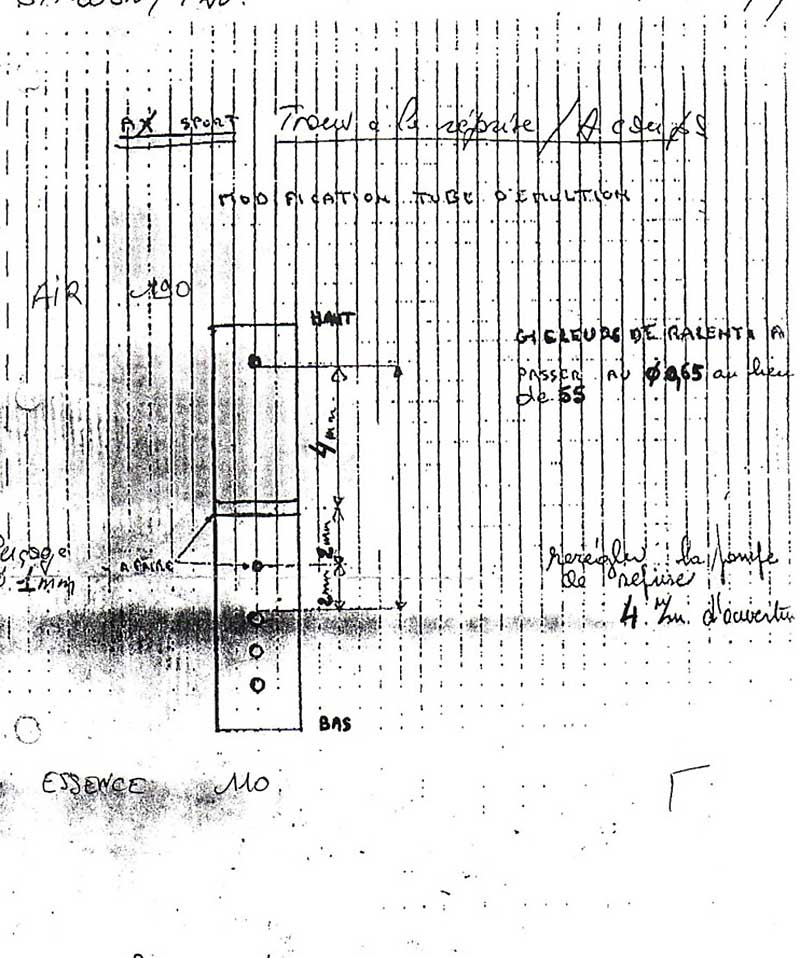 AX SPORT Trou à la reprise / A coups
MODIFICATION TUBE D'EMULTION
AIR 190
HAUT
GICLEURS DE RALENTI A
PASSER AU Ø 0,65 au lieu
de 55
4mm
2mm
perçage
1mm
A FAIRE
2mm
rerégler la pompe
de reprise
4 m/m d'ouvertu
BAS
ESSENCE 110